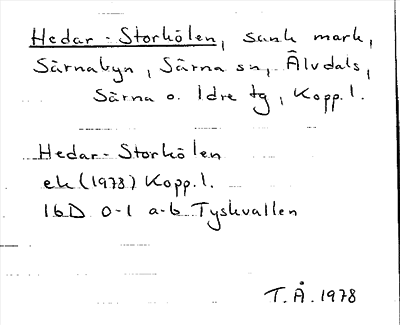 Hedar-Storkölen, sank mark,
Särnabyn, Särna sn, Älvdals,
Särna o. Idre tg, Kopp.l.
Hedar-Storkölen
ek (1973) Kopp.l.
16D 0-1 a-b Tyskvallen
T.Å. 1978